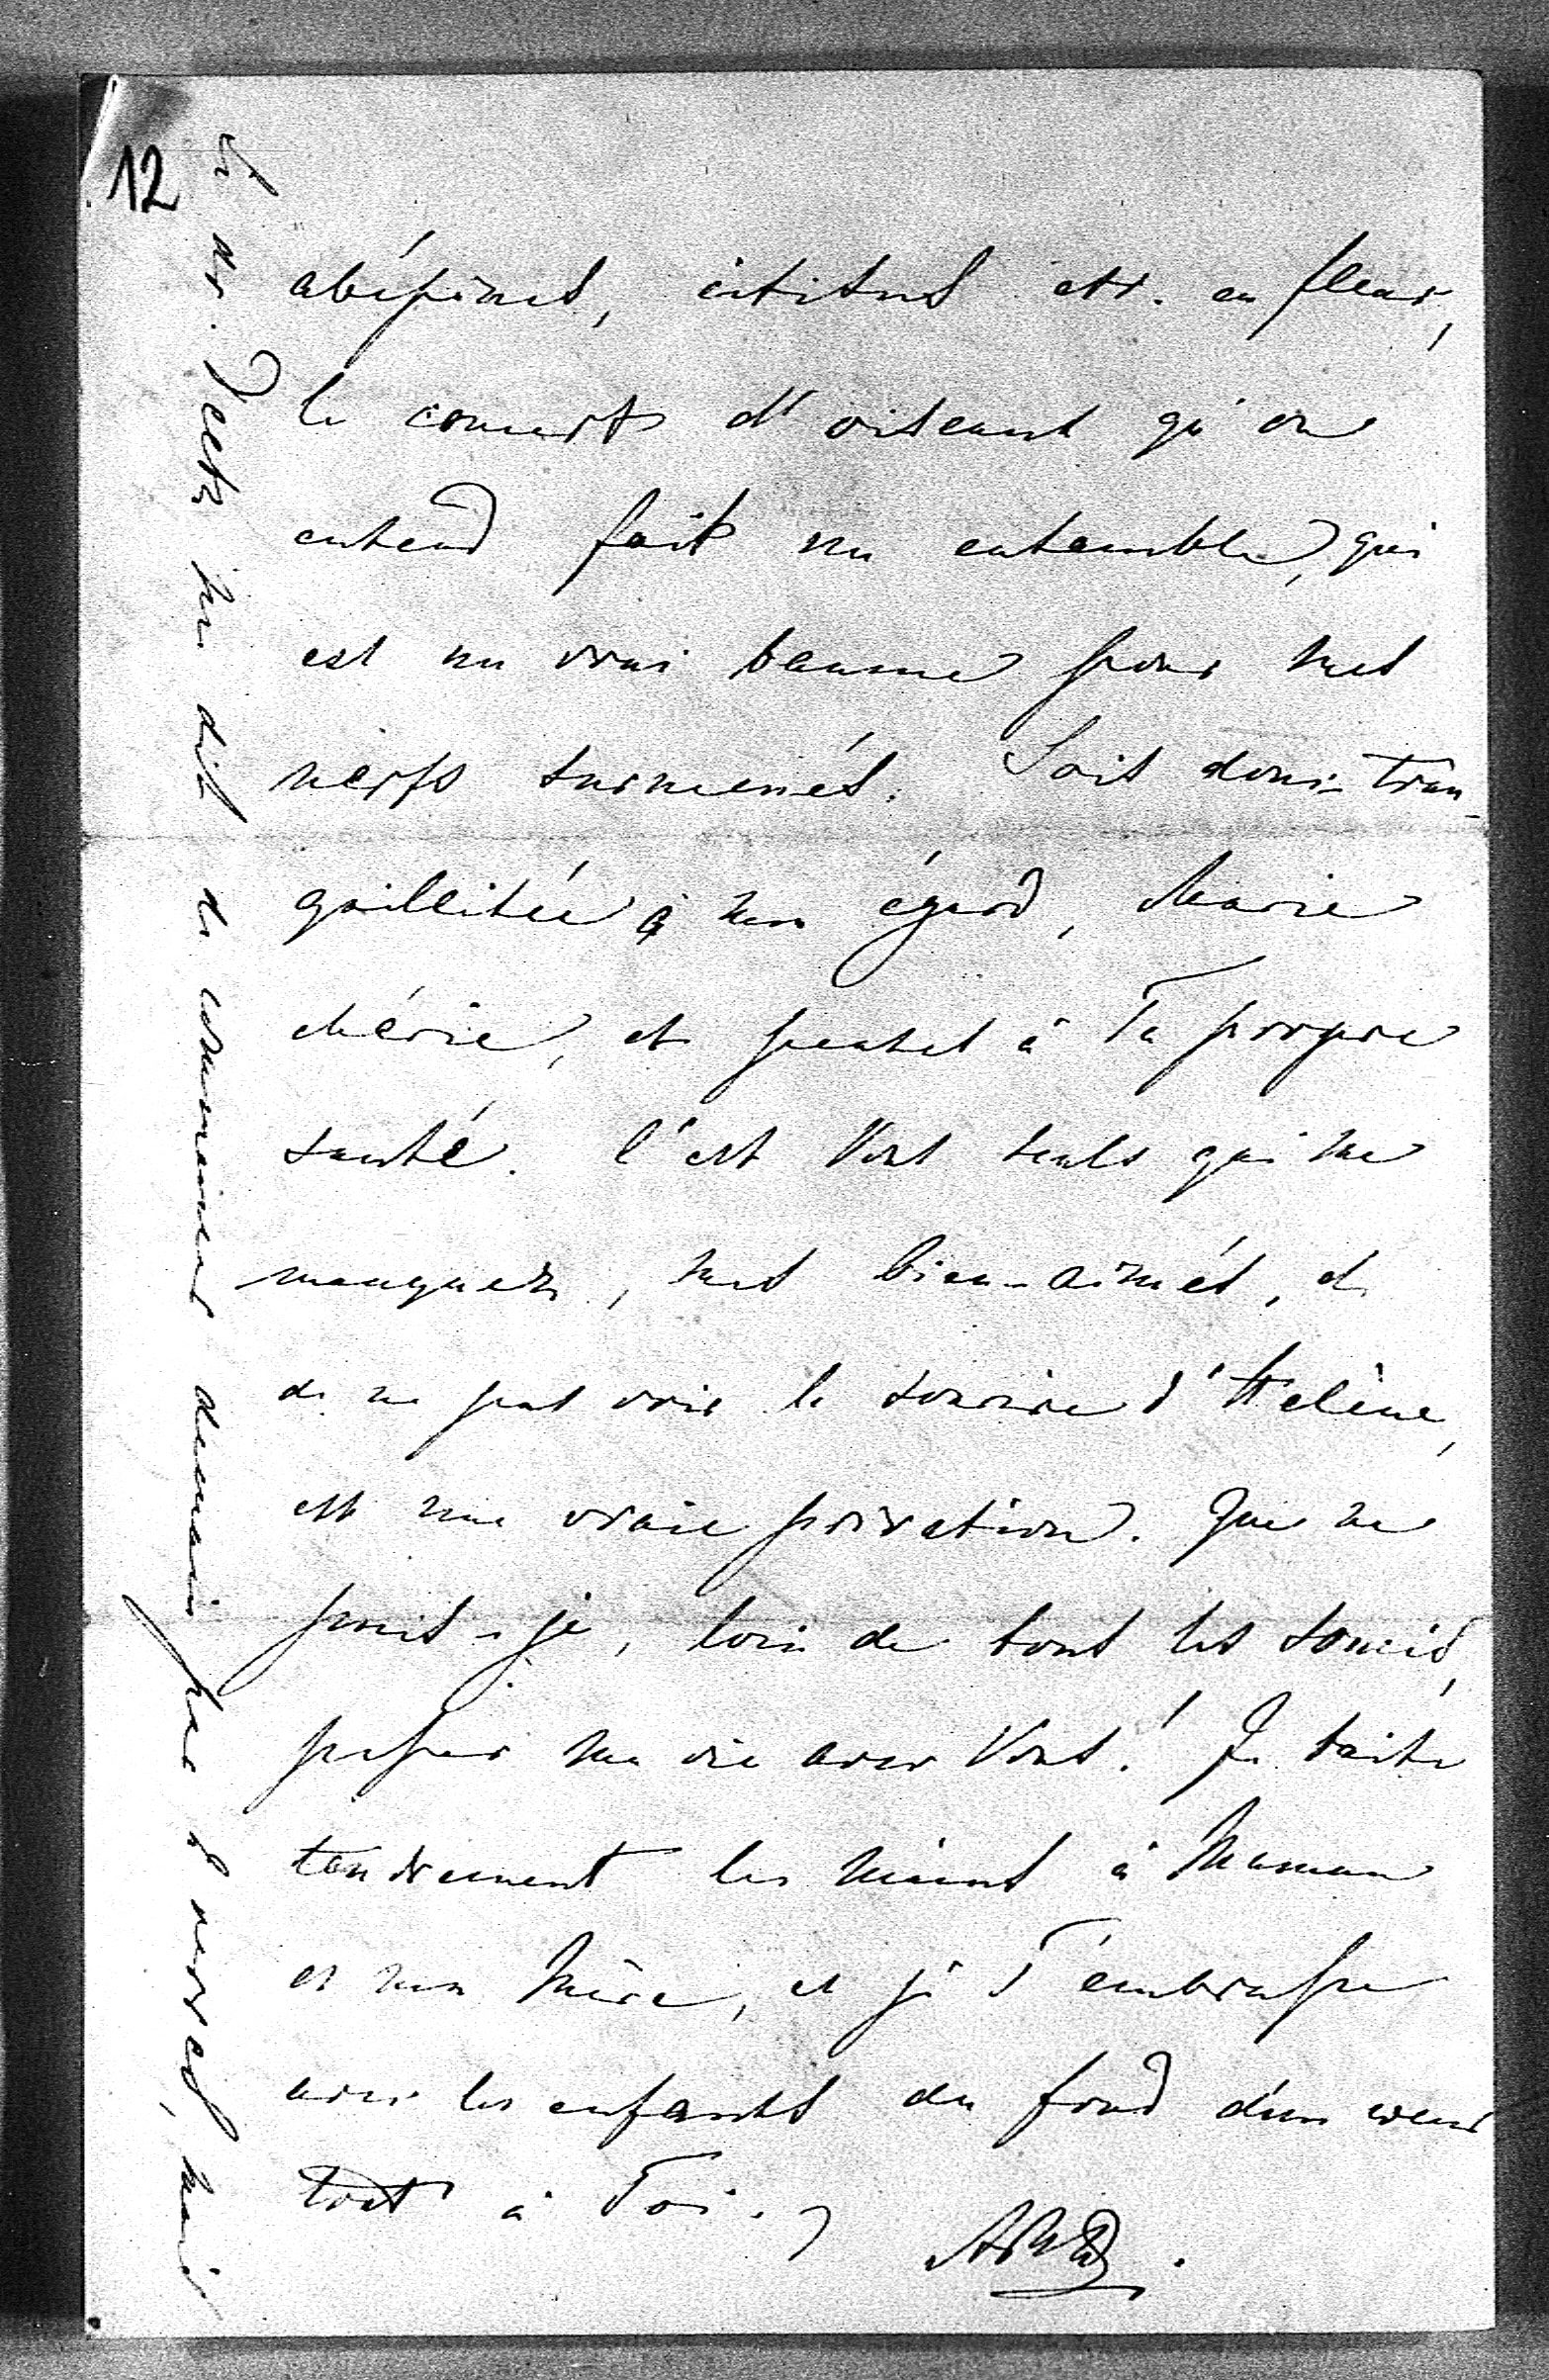 12
abépines, citises etc. en fleur,
le concert d'oiseaux qu'on
entend fait un ensemble, qui
est un vrai baume pour mes
nerfs surmenés. Sois donc tran-
quillisée à mon égard, Marie
chérie, et penses à Ta propre
santé. C'est Vous seuls qui me
manquez, mes bien-aimés, et
de ne pas voir le sourire d'Helène,
est une vraie privation. Que ne
puis-je, loin de tous les soucis,
passer ma vie avec Vous! Je baise
tendrement les mains à Maman
et ma Mère, et je T'embrasse
avec les enfants du fond d'un coeur
tout à Toi.
le dr. me dit de commencer demain par 6 verres, mais